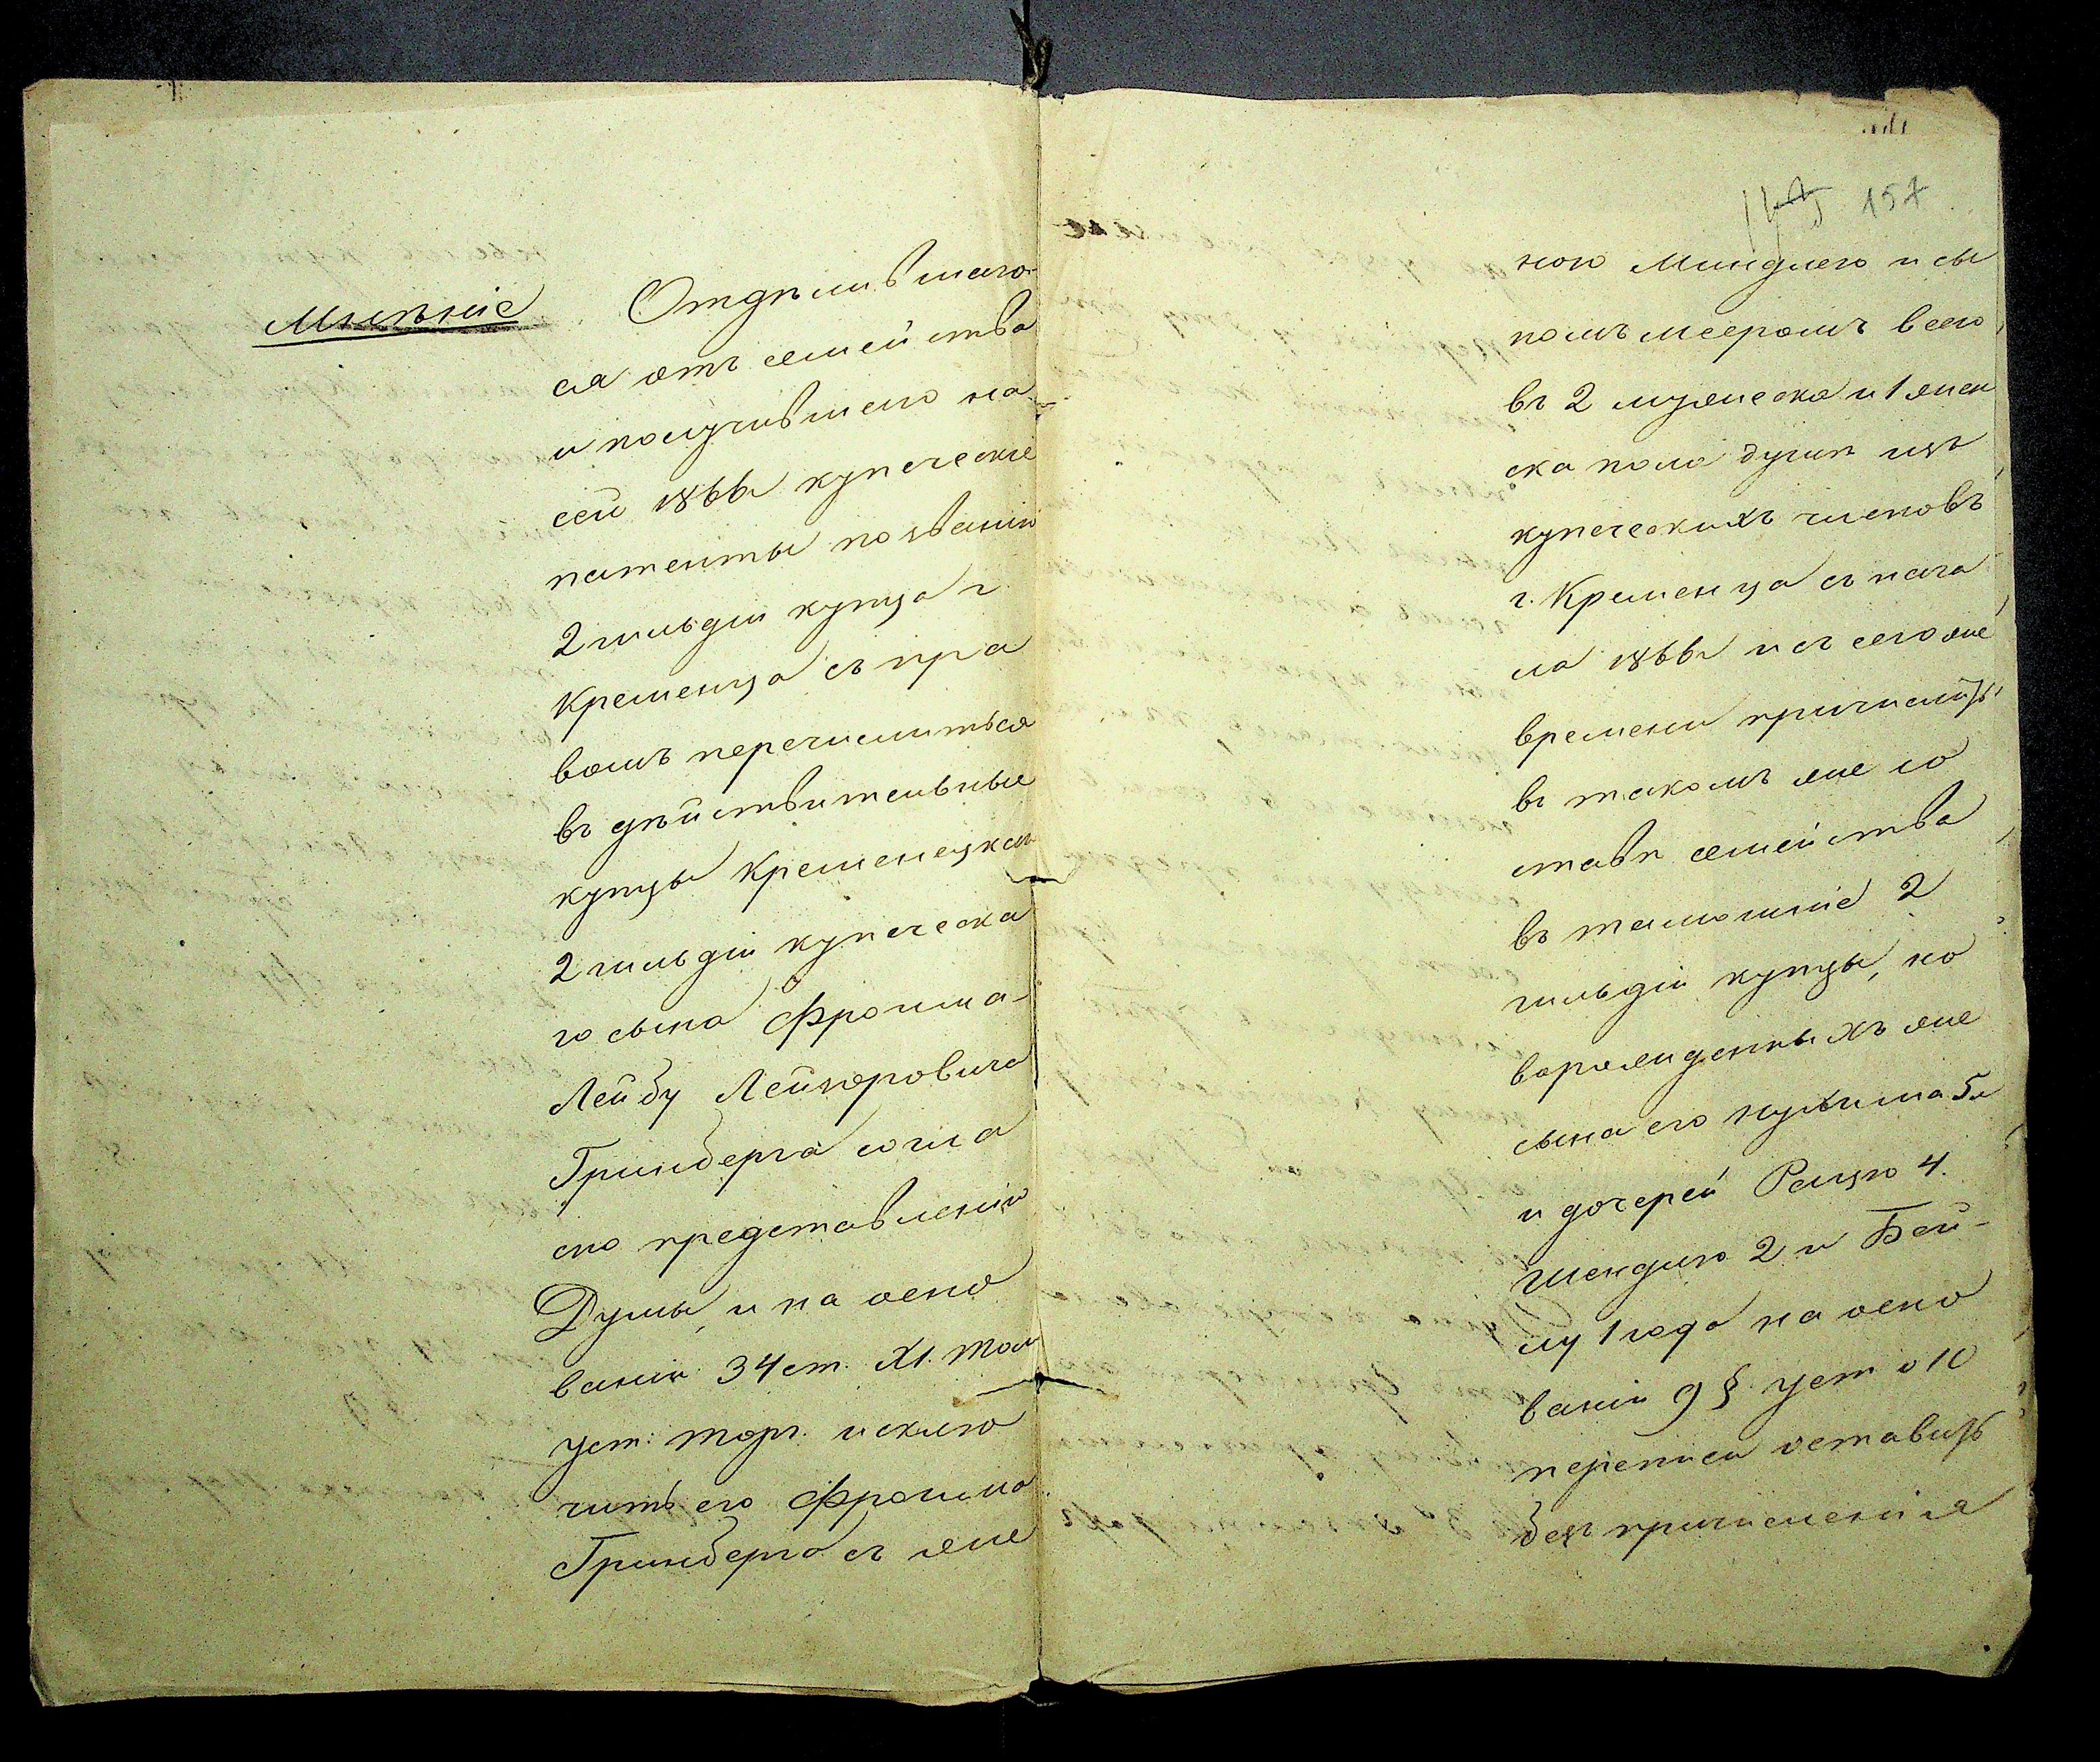 Мнѣніе
Отдѣлившаго
ся отъ семейства
и получившаго на
сей 1866г купеческіе
патенты по званію
2 гильдіи купца г.
Кременца съ пра
вомъ перечислиться
въ дѣйствительные
купцы Кременецкаго
2 гильдіи купеческа
го сына Фроима-
Лейбу Лейзеровича
Гринберга согла
сно представленію
Думы, и на осно
ваніи 34 ст. XI. Том
Уст: торг. исклю
чить его Фроима
Гринберга съ же
157
ною Миндлею и сы
номъ Мееромъ всего
въ 2 мужеска и 1 жен
ска пола душѣ изъ
купеческихъ членовъ
г. Кременца съ нача
ла 1866г и съ сего же
времени причислить
въ такомъ же со
ставѣ семейства
въ тамошніе 2
гильдіи купцы, но
ворожденныхъ же
сына его Нухима 5 л
и дочерей Рейзю 4.
Шендлю 2 и Бей-
лу 1 года на осно
ваніи 9 § уст о 10
переписи оставить
безъ причисленія